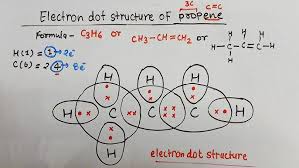 Electron dot structure of propene
3C C=C
Formula- C3H6 or CH3-CH=CH2 or
H H H
H-C-C=C-H
H
H(1) = 1 → 2e⁻
C(6) = 2 4 → 8e⁻
H H H
H C C C
H
electron dot structure